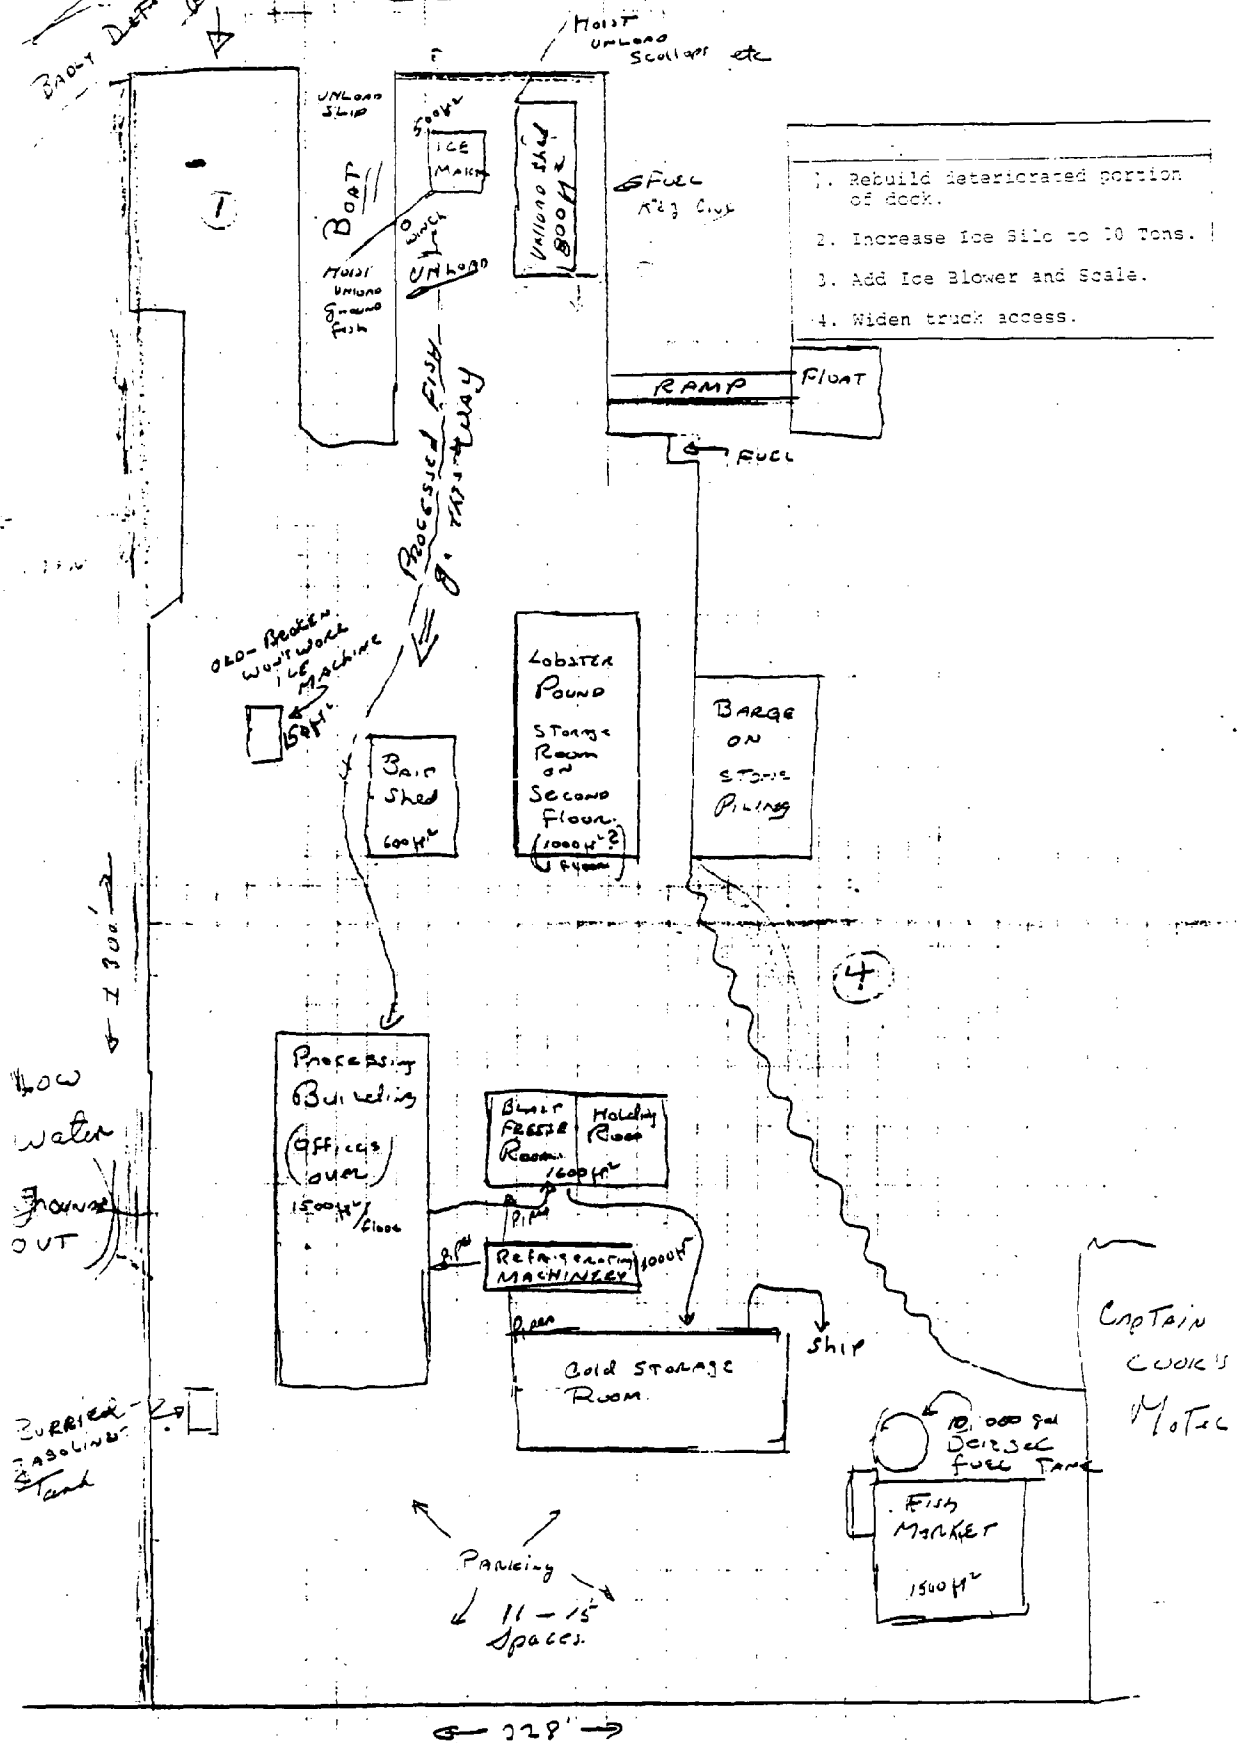 BADLY
HOIST
UNLOAD
Scallops etc
UNLOAD
SLIP
BOAT
HOIST
UNLOAD
Ground
fish
500 ft²
ICE
WINCH
UNLOAD
UNLOAD Shed
800 ft²
FUEL
1
1. Rebuild deteriorated portion
of dock.
2. Increase Ice Silo to 10 Tons.
3. Add Ice Blower and Scale.
4. Widen truck access.
RAMP
FLOAT
FUEL
PROCESSED FISH
OLD-BROKEN
WON'T WORK
ICE
MACHINE
Bait
Shed
600 ft²
LOBSTER
POUND
STORAGE
Room
ON
SECOND
Floor
(1000 ft²?
BARGE
ON
PILING
± 300'
4
LOW
Water
OUT
PROCESSING
Building
(Offices
over)
1500 ft²/
floor
BLAST
FREEZE
Room
Holding
Room
1600 ft²
Pipes
Pipes
Refrigerating
MACHINERY
1000 ft²
Pipes
Ship
Cold STORAGE
ROOM.
CAPTAIN
COOK'S
MOTEL
BURRIED
GASOLINE
Tank
10,000 gal
DEIZSEL
FUEL TANK
FISH
MARKET
1500 ft²
PARKING
11 - 15
Spaces.
228'